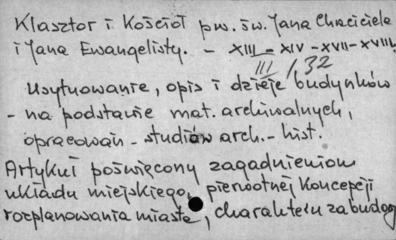 Klasztor i Kościół pw. św. Jana Chrciciela
i Jana Ewangelisty. – XIII – XIV – XVII – XVIII.
III / 32
Usytuowanie, opis i dzieje budynków
– na podstawie mat. archiwalnych,
opracowań – studiów arch. – hist.
Artykuł poświęcony zagadnieniom
układu miejskiego, pierwotnej koncepcji
rozplanowania miasta, charakteru zabudowy